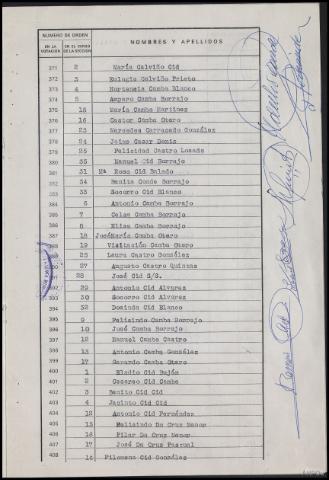 NUMERO DE ORDEN
EN LA VOTACION EN EL CENSO DE LA SECCION NOMBRES Y APELLIDOS
371 2 María Calviño Cid
372 3 Eulogia Calviño Prieto
373 4 Hortensia Camba Blanco
374 5 Amparo Camba Borrajo
375 15 María Camba Martinez
376 16 Castor Camba Otero
377 23 Mercedes Carracedo González
378 24 Jaime Casar Denis
379 25 Felicidad Castro Losada
380 35 Manuel Cid Borrajo
381 31 Mª Rosa Cid Balado
382 34 Benita Conde Borrajo
383 33 Socorro Cid Blanco
384 6 Antonio Camba Borrajo
385 7 Celsa Camba Borrajo
386 8 Elisa Camba Borrajo
387 18 JoséMaría Camba Otero
388 19 Visitación Camba Otero
389 25 Laura Castro González
390 27 Augusto Castro Quintas
391 28 José Cid S/S.
392 29 Antonio Cid Alvarez
393 30 Socorro Cid Alvarez
394 32 Dominda Cid Blanco
395 9 Felisindo Camba Borrajo
396 10 José Camba Borrajo
397 12 Manuel Camba Castro
398 13 Antonio Camba González
399 17 Gerardo Camba Otero
400 1 Eladio Cid Buján
401 2 Cesareo Cid Camba
402 3 Benito Cid Cid
403 4 Jacinto Cid Cid
404 12 Antonio Cid Fernández
405 15 Felisindo Da Cruz Menor
406 16 Pilar Da Cruz Menor
407 17 José Da Cruz Pascual
408 15 Filomena Cid González